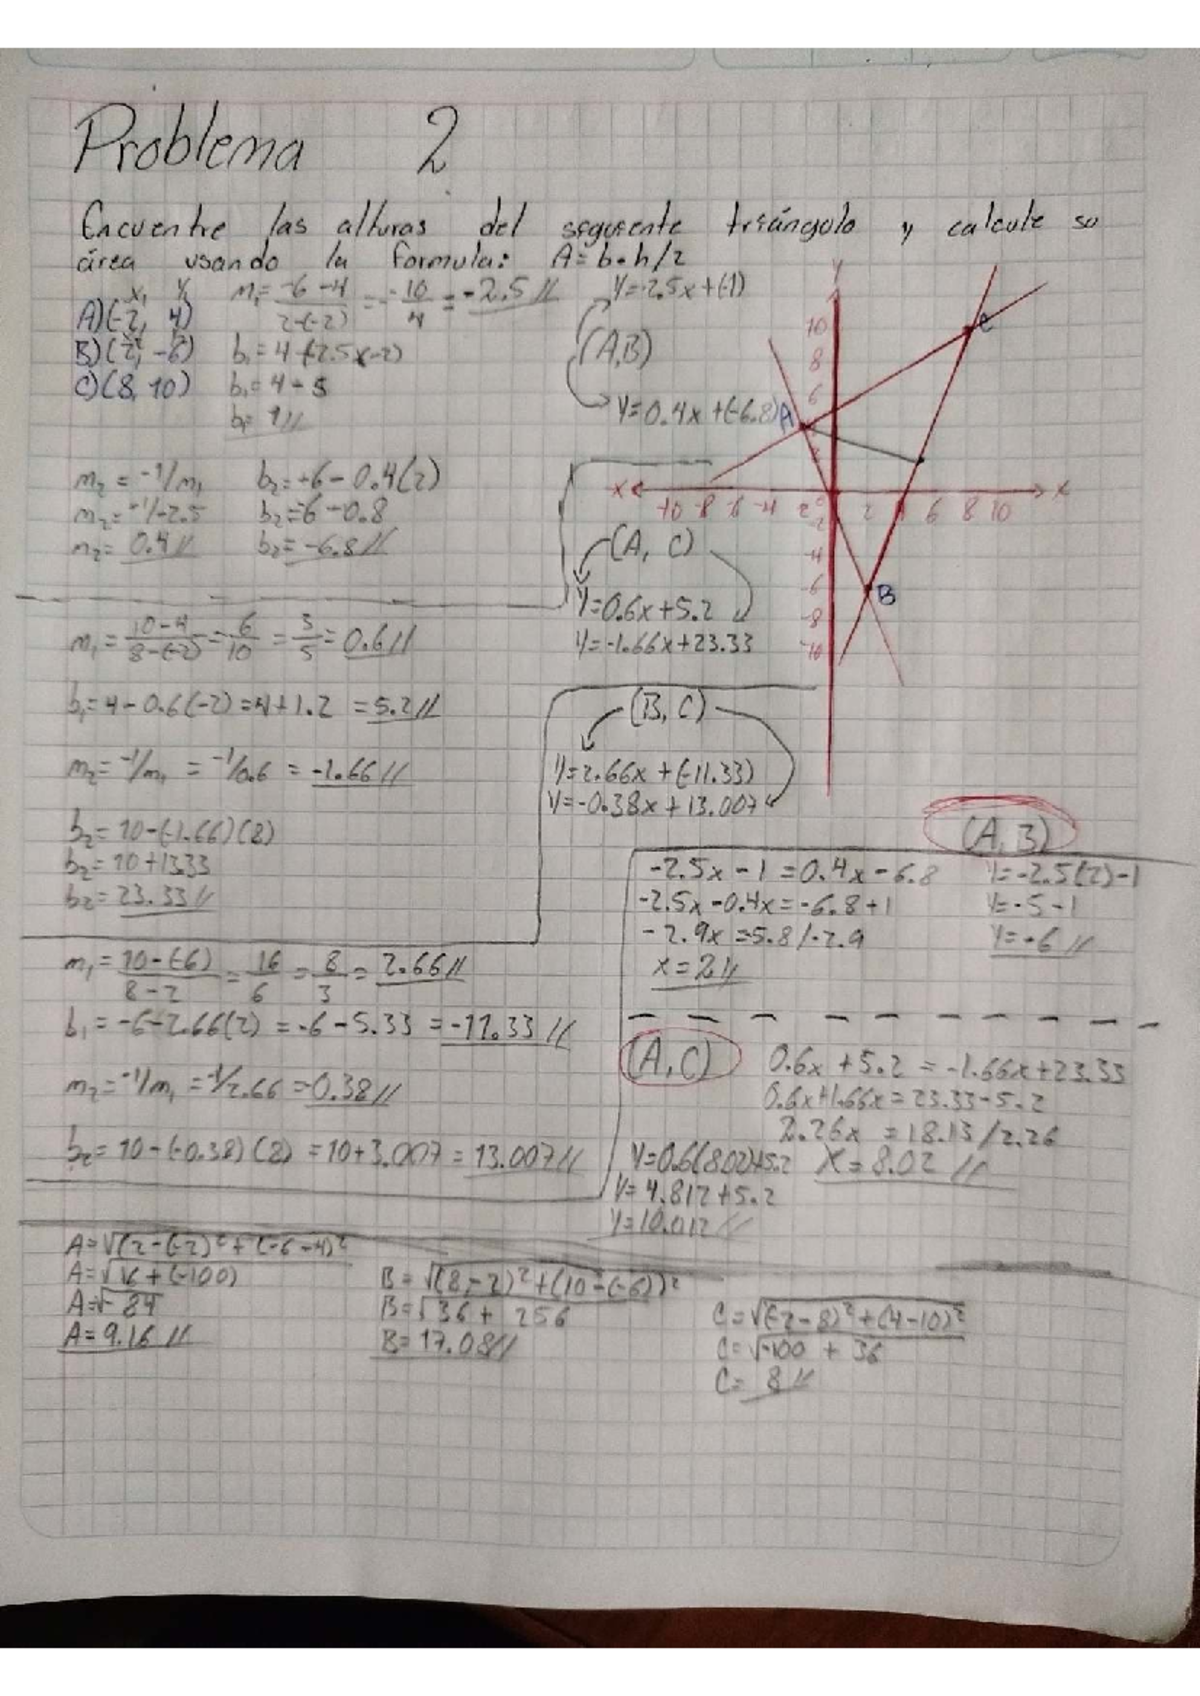 Problema 2
Encuentre las alturas del seguiente triángulo y calcule su
área usando la formula: A= b•h/2
x, y,
A)(-2, 4)
B)(2, -6)
C)(8, 10)
m₁= -6-4/2-(-2) = -10/4 = -2.5//
b₁= 4-(2.5x-2)
b₁= 4-5
b₁= 1//
Y=-2.5x+(-1)
(A,B)
Y=0.4x+(-6.8)
m₂ = -1/m₁
m₂= -1/-2.5
m₂= 0.4//
b₂= -6-0.4(2)
b₂= -6-0.8
b₂= -6.8//
Y
10
8
6
2
A
C
B
X
-10 -8 -6 -4 2 0 2 4 6 8 10
X
-2
-4
-6
-8
-10
(A, C)
Y=0.6x+5.2
Y=-1.66x+23.33
m₁= 10-4/8-(-2) = 6/10 = 3/5 = 0.6//
b₁= 4-0.6(-2) = 4+1.2 = 5.2//
m₂= -1/m₁ = -1/0.6 = -1.66//
b₂= 10-(-1.66)(8)
b₂= 10+13.33
b₂= 23.33//
(B, C)
Y=2.66x+(-11.33)
Y=-0.38x+13.007
m₁= 10-(-6)/8-2 = 16/6 = 8/3 = 2.66//
b₁= -6-2.66(2) = -6-5.33 = -11.33//
m₂= -1/m₁ = -1/2.66 = 0.38//
b₂= 10-(-0.38)(8) = 10+3.007 = 13.007//
(A, B)
-2.5x-1=0.4x-6.8
-2.5x-0.4x=-6.8+1
-2.9x=5.8/-2.9
x=2//
Y=-2.5(2)-1
Y=-5-1
Y=-6//
(A, C)
0.6x+5.2=-1.66x+23.33
0.6x+1.66x=23.33-5.2
2.26x=18.13/2.26
X=8.02//
Y=0.6(8.02)+5.2
Y=4.812+5.2
Y=10.012//
A=√(2-(-2)²+(-6-4)²
A=√16+(-100)
A=√-84
A=9.16//
B=√(8-2)²+(10-(-6))²
B=√36+256
B=17.08//
C=√(-2-8)²+(4-10)²
C=√-100+36
C=8//